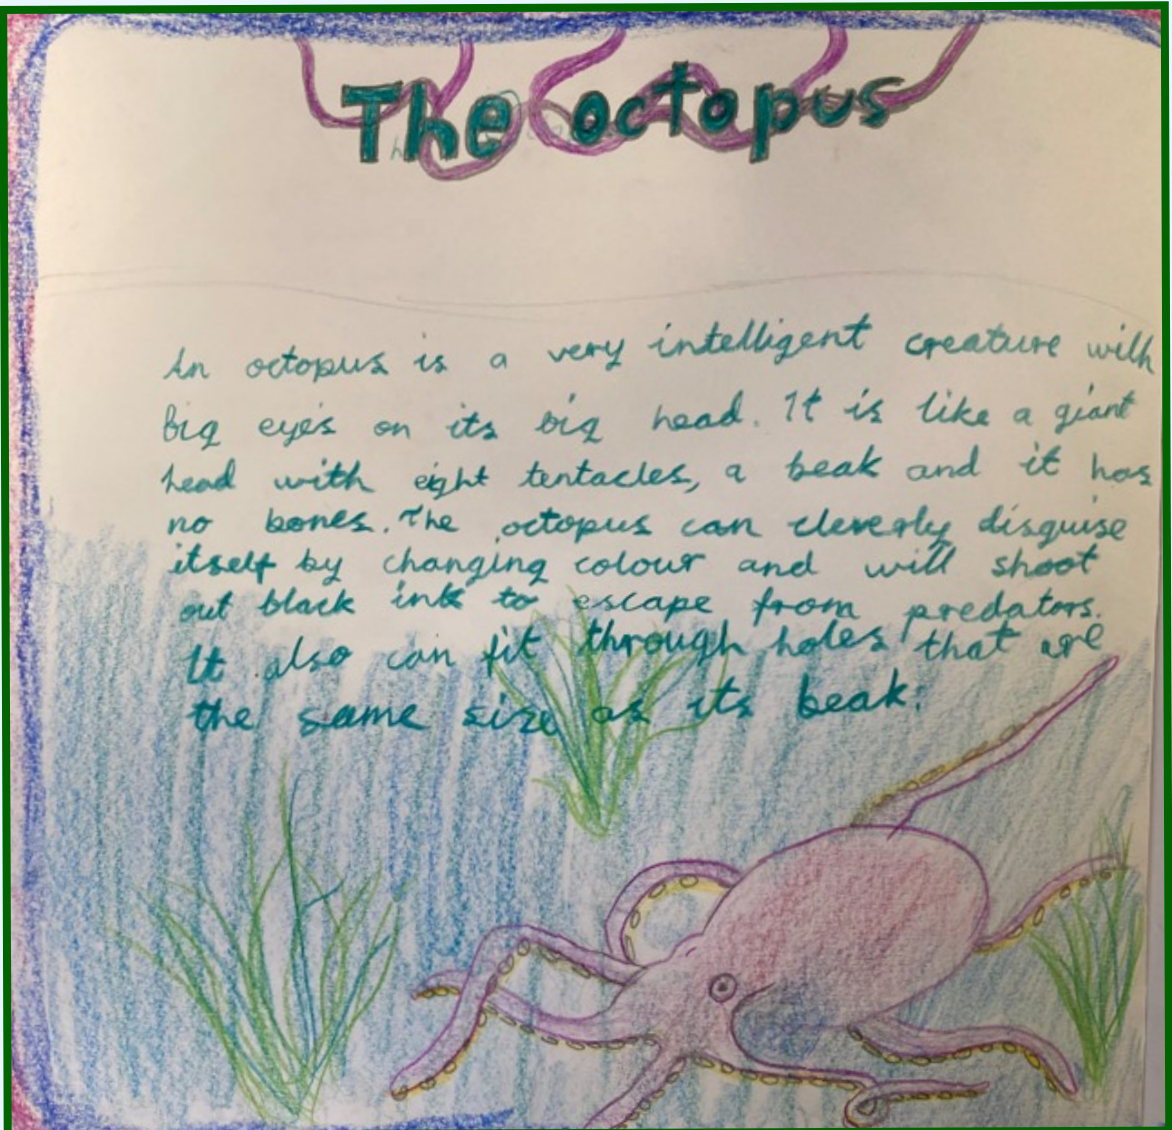 The octopus
An octopus is a very intelligent creature with
big eyes on its big head. It is like a giant
head with eight tentacles, a beak and it has
no bones. The octopus can cleverly disguise
itself by changing colour and will shoot
out black ink to escape from predators.
It also can fit through holes that are
the same size as its beak.